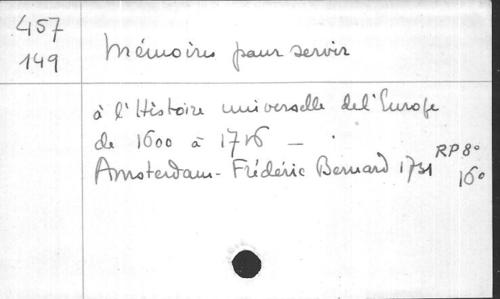 457
149
Mémoires pour servir
à l'Histoire universelle de l'Europe
de 1600 à 1716 —
Amsterdam - Frédéric Bernard 1731
RP 8°
16°